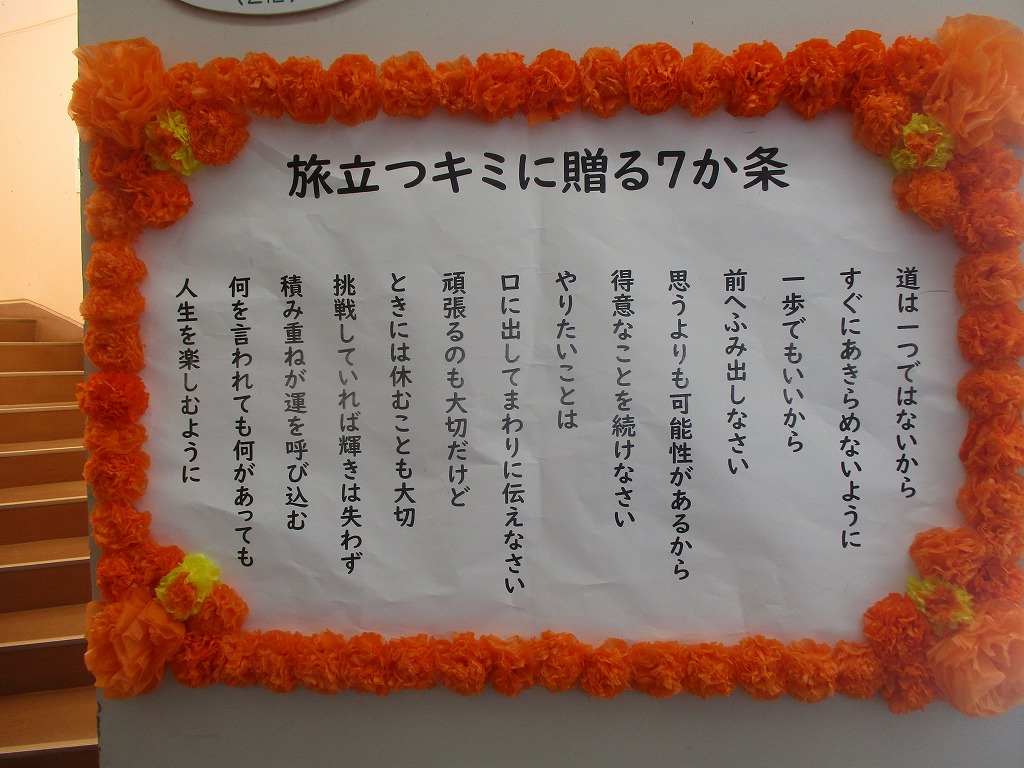 旅立つキミに贈る7か条
道は一つではないから
すぐにあきらめないように
一歩でもいいから
前へふみ出しなさい
思うよりも可能性があるから
得意なことを続けなさい
やりたいことは
口に出してまわりに伝えなさい
頑張るのも大切だけど
ときには休むことも大切
挑戦していれば輝きは失わず
積み重ねが運を呼び込む
何を言われても何があっても
人生を楽しむように